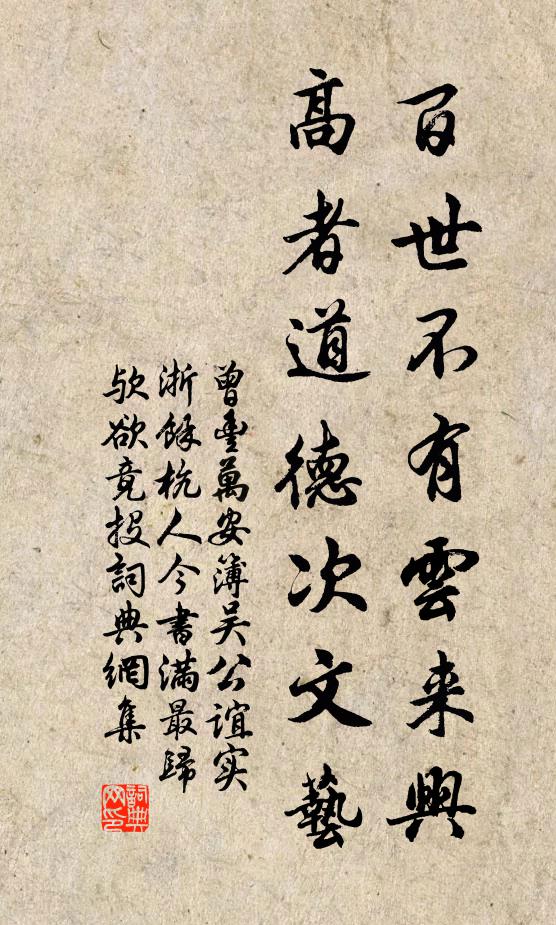 百世不有雲来興
高者道德次文藝
曾豊萬安簿吴公誼实
浙餘杭人今書滿最歸
欤欲竟投詞典網集
詞典网印